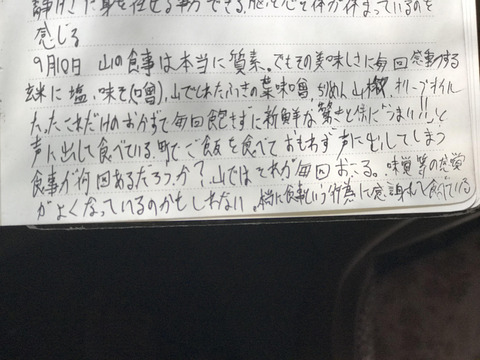 静けさに身を任せる事ができる。脳も心も体が休まっているのを
感じる
9月10日 山の食事は本当に質素、でもその美味しさに毎回感動する
玄米に塩、味そ(味噌)、山でとれたふきの葉味噌 ちりめん山椒 オリーブオイル
たったこれだけのおかずで毎回飽きずに新鮮な驚きと供に"うまい!!"と
声に出して食べている。町でご飯を食べておもわず声に出してしまう
食事が何回あるだろうか?山ではそれが毎回おこる。味覚等の感覚
がよくなっているのかもしれない。 食事という行為に感謝して食べている